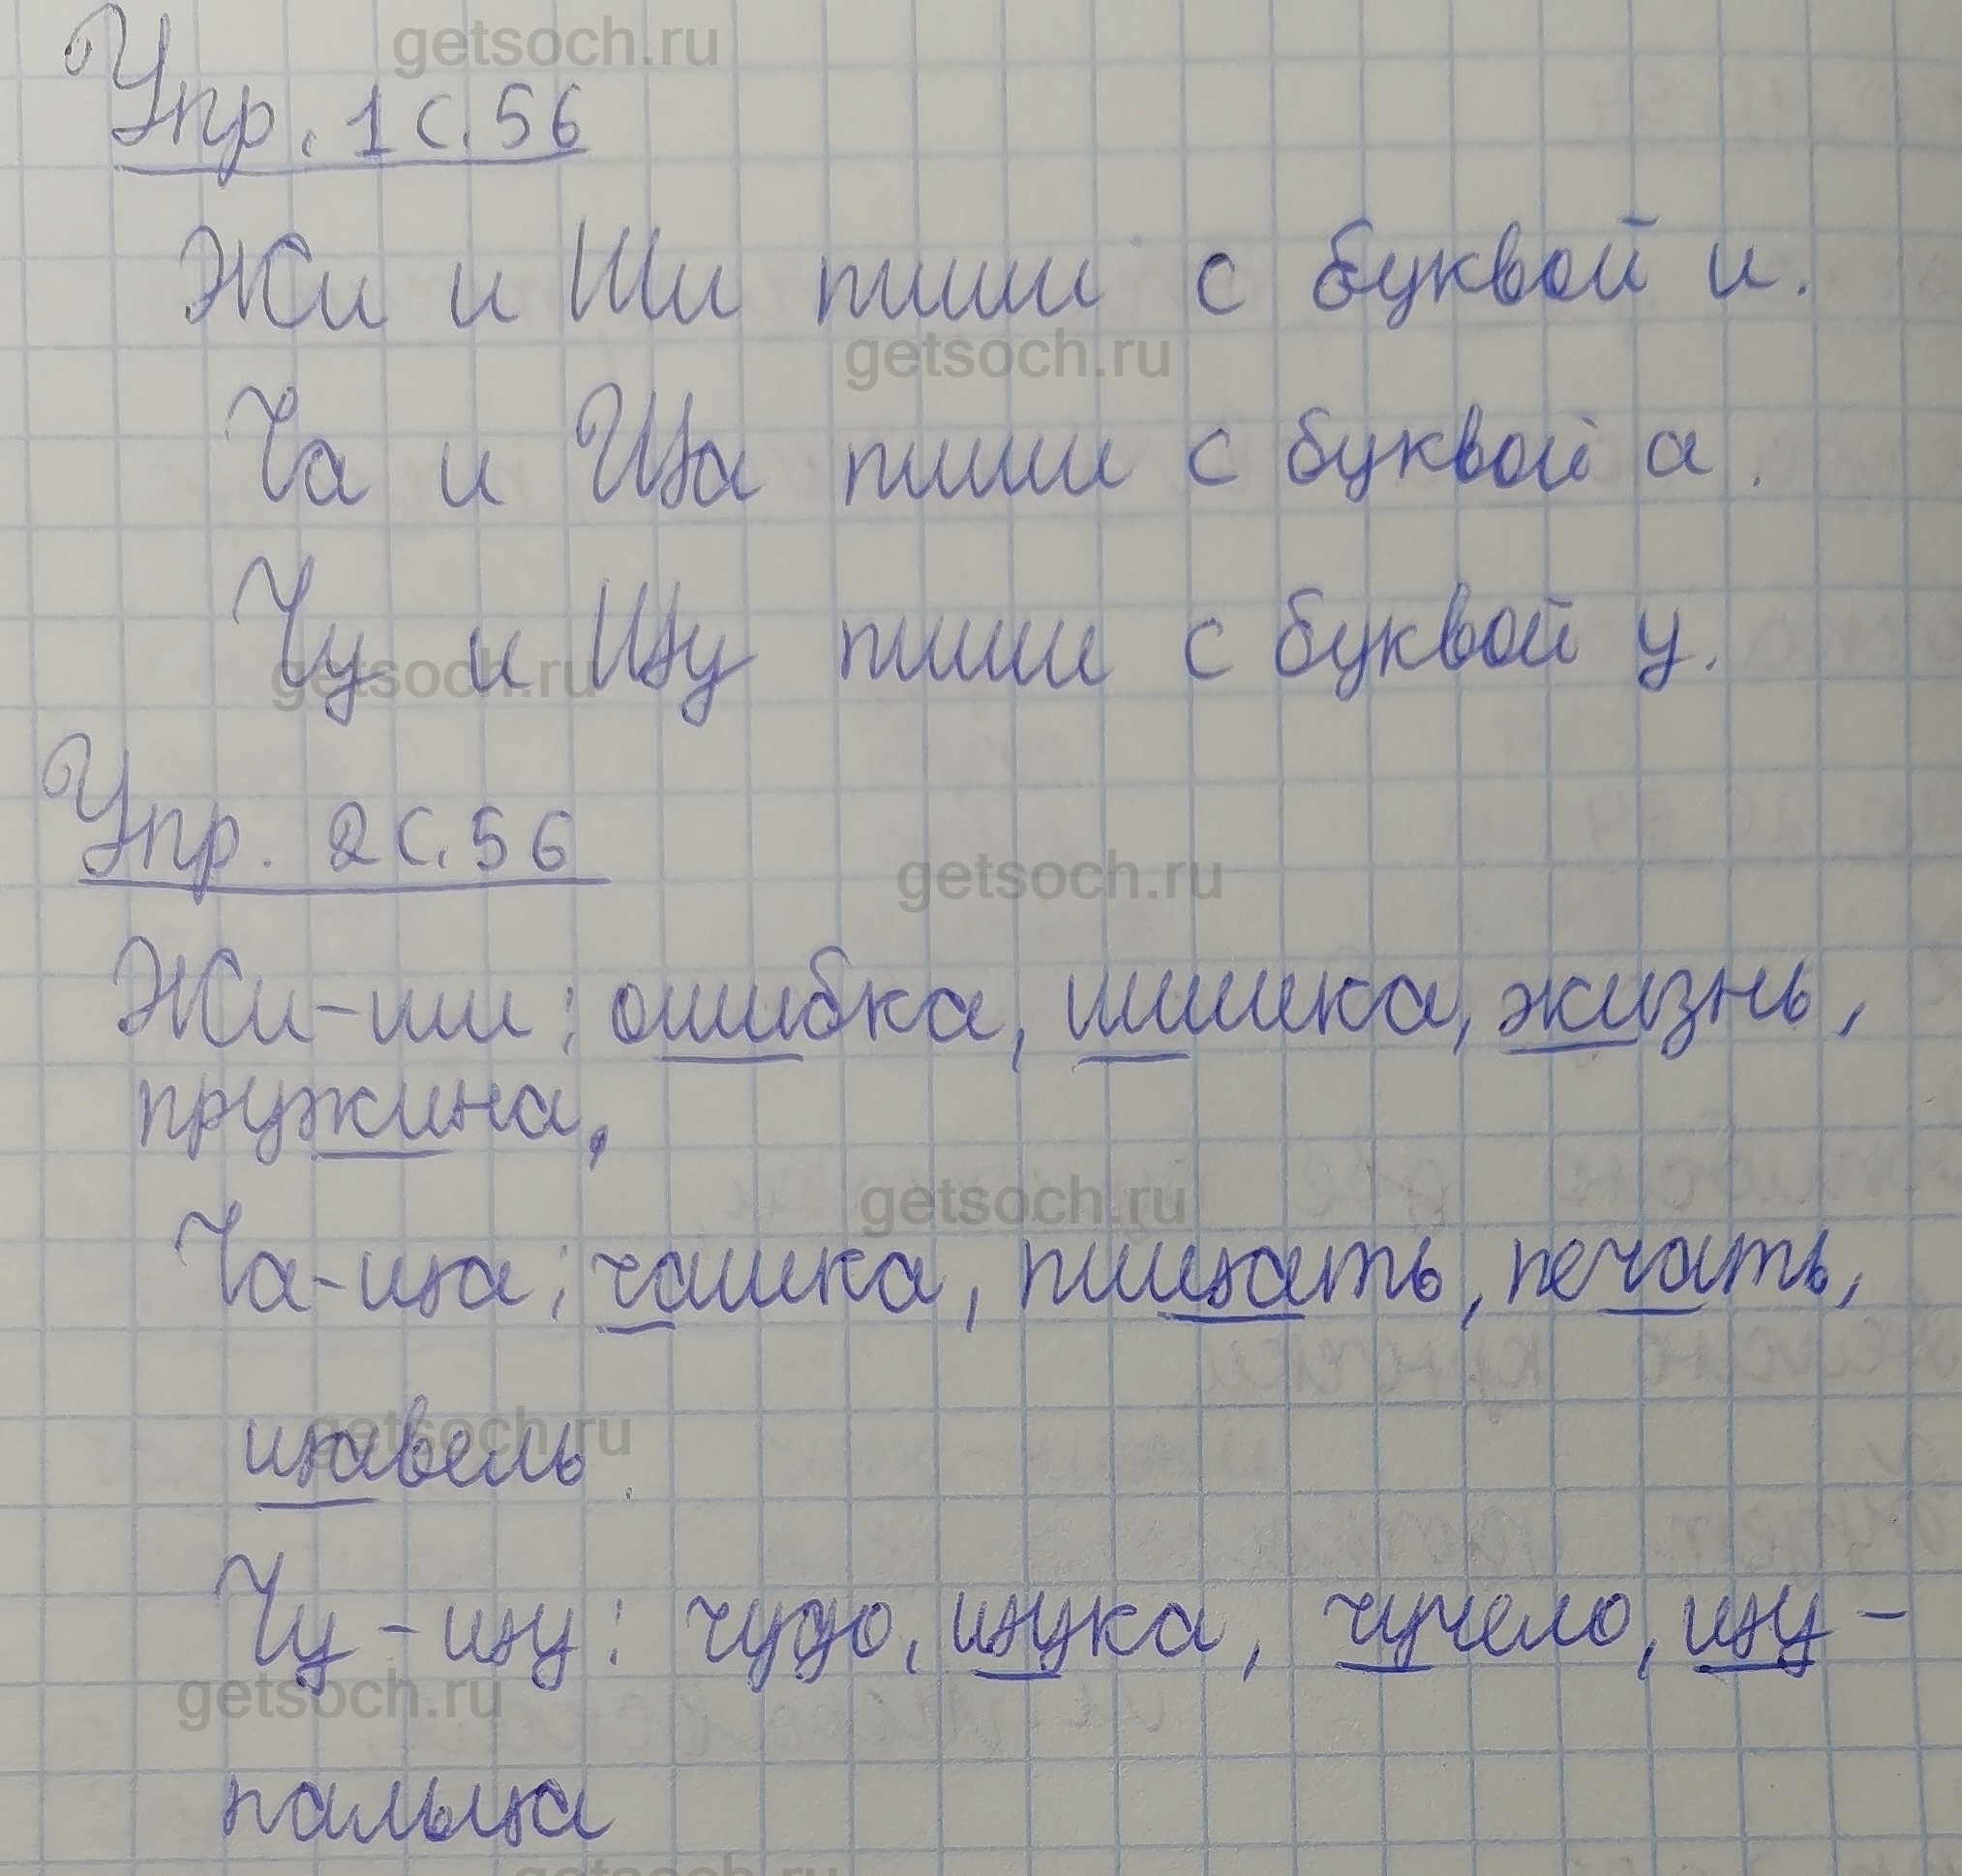 getsoch.ru
Упр. 1 с. 56
Жи и Ши пиши с буквой и.
getsoch.ru
Ча и Ща пиши с буквой а.
Чу и Щу пиши с буквой у.
getsoch.ru
Упр. 2 с. 56
getsoch.ru
Жи-ши: ошибка, шишка, жизнь,
пружина,
getsoch.ru
Ча-ща: чашка, пищать, печать,
щавель.
getsoch.ru
Чу-щу: чудо, щука, чучело, щу-
getsoch.ru
пальца
getsoch.ru